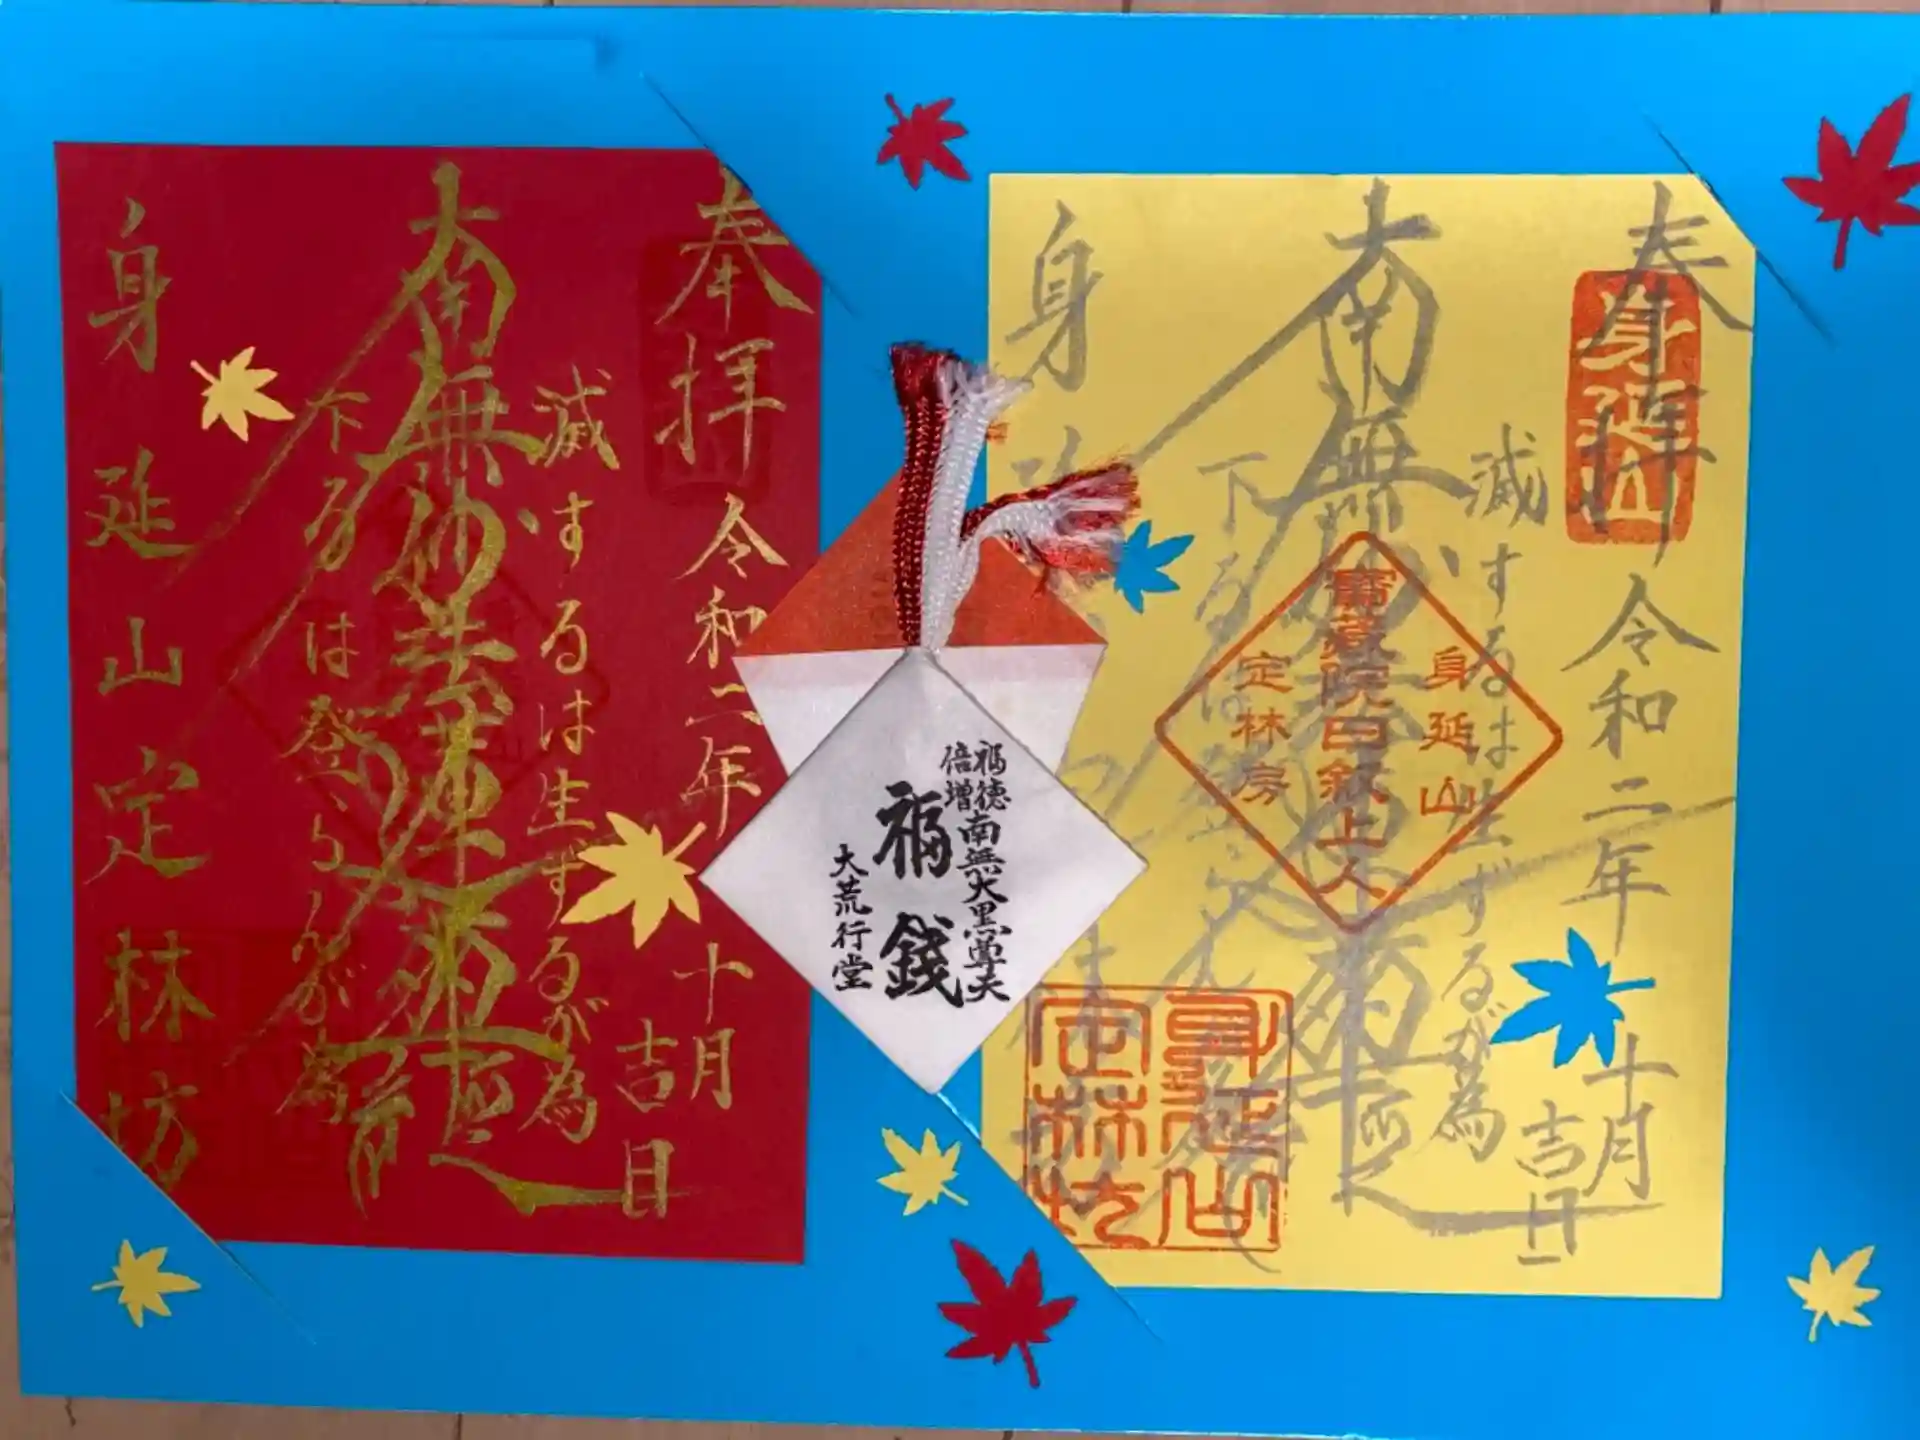 奉拝
令和二年
十月
吉日
滅するは生ずるが為
南無妙法蓮華経
下るは登らんが為
身延山定林坊
福徳
倍増
南無大黒尊天
福銭
大荒行堂
奉拝
身延山
令和二年
十月
吉日
滅するは生ずるが為
南無妙法蓮華経
身延山
寶蔵院日叙上人
定林房
身延山
定林坊